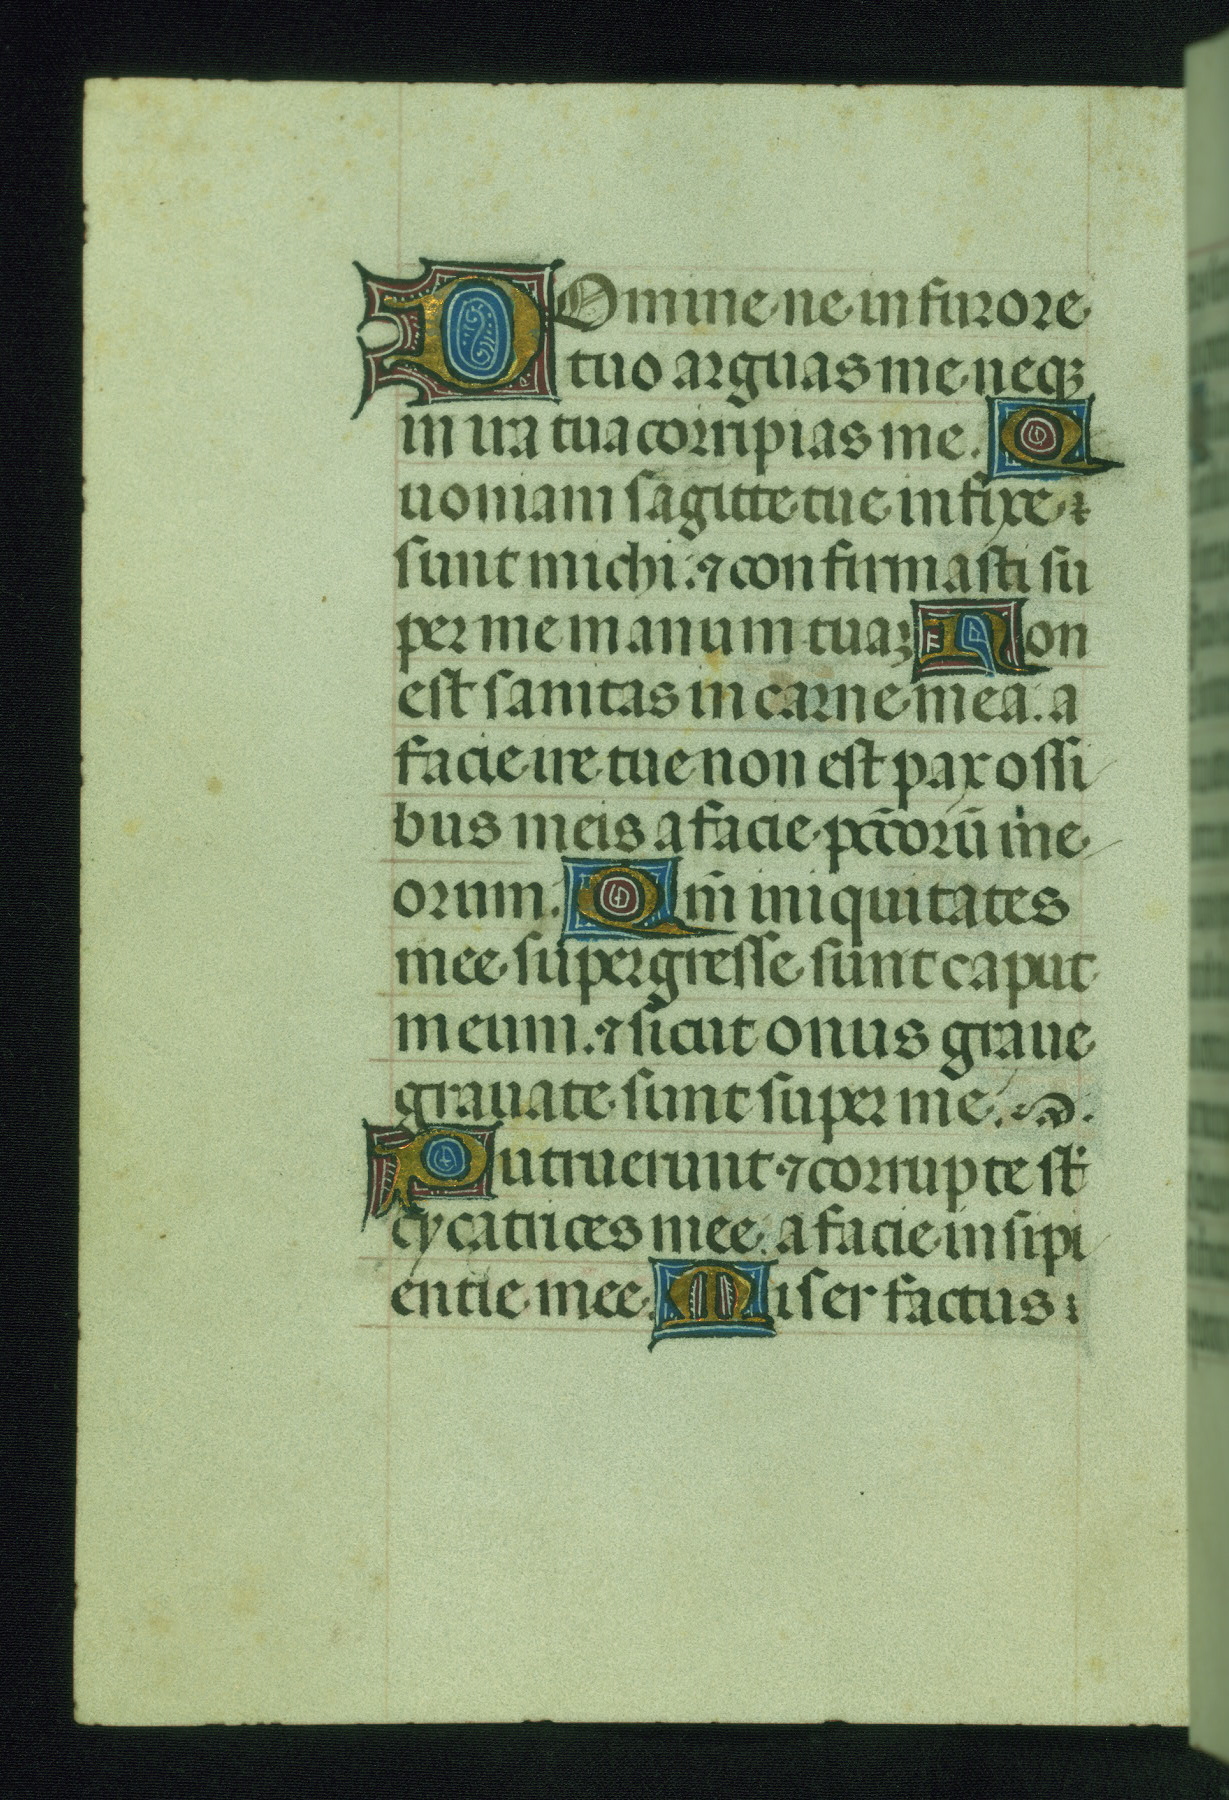 DOmine ne in furore
tuo arguas me neqꝫ
in ira tua corripias me. Q
uoniam sagitte tue infixe
sunt michi: ⁊ confirmasti su
per me manum tuaꝫ Non
est sanitas in carne mea. a
facie ire tue non est pax ossi
bus meis a facie pctōrū me
orum. Qm̄ iniquitates
mee supergresse sunt caput
meum. ⁊ sicut onus graue
grauate sunt super me.
Putruerunt ⁊ corrupte st̄
cycatrices mee. a facie insipi
entie mee. Miser factus